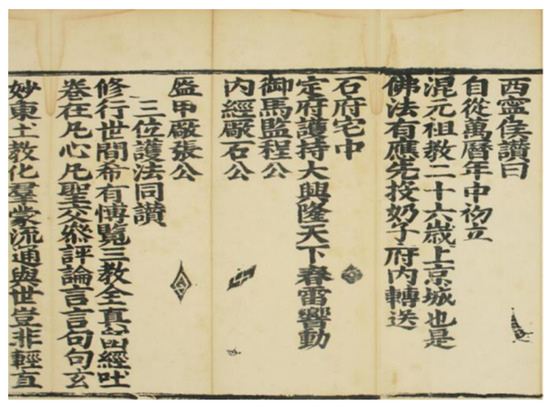 西寧侯讚曰
自從萬曆年中初立
混元祖教二十六歲上京城也是
佛法有應先投奶子府內轉送
石府宅中
定府護持大興隆天下春雷響動
御馬監程公
內經厰石公
盔甲厰張公
三位護法同讚
修行世間希有愽覽三教全真留經吐
卷在凡心凡聖交叅評論言言句句玄
妙東土教化羣蒙流通與世豈非輕直